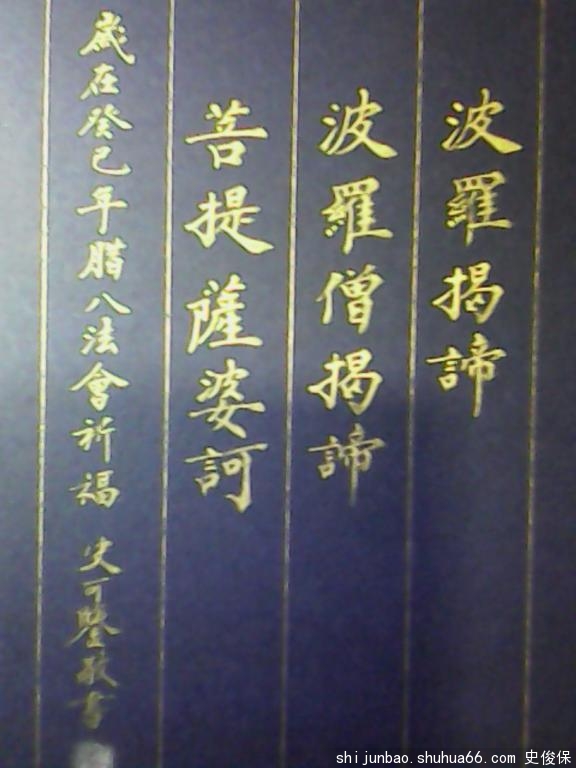 波羅揭諦
波羅僧揭諦
菩提薩婆訶
歲在癸巳年腊八法會祈福 史可鑒敬書
shijunbao.shuhua66.com 史俊保